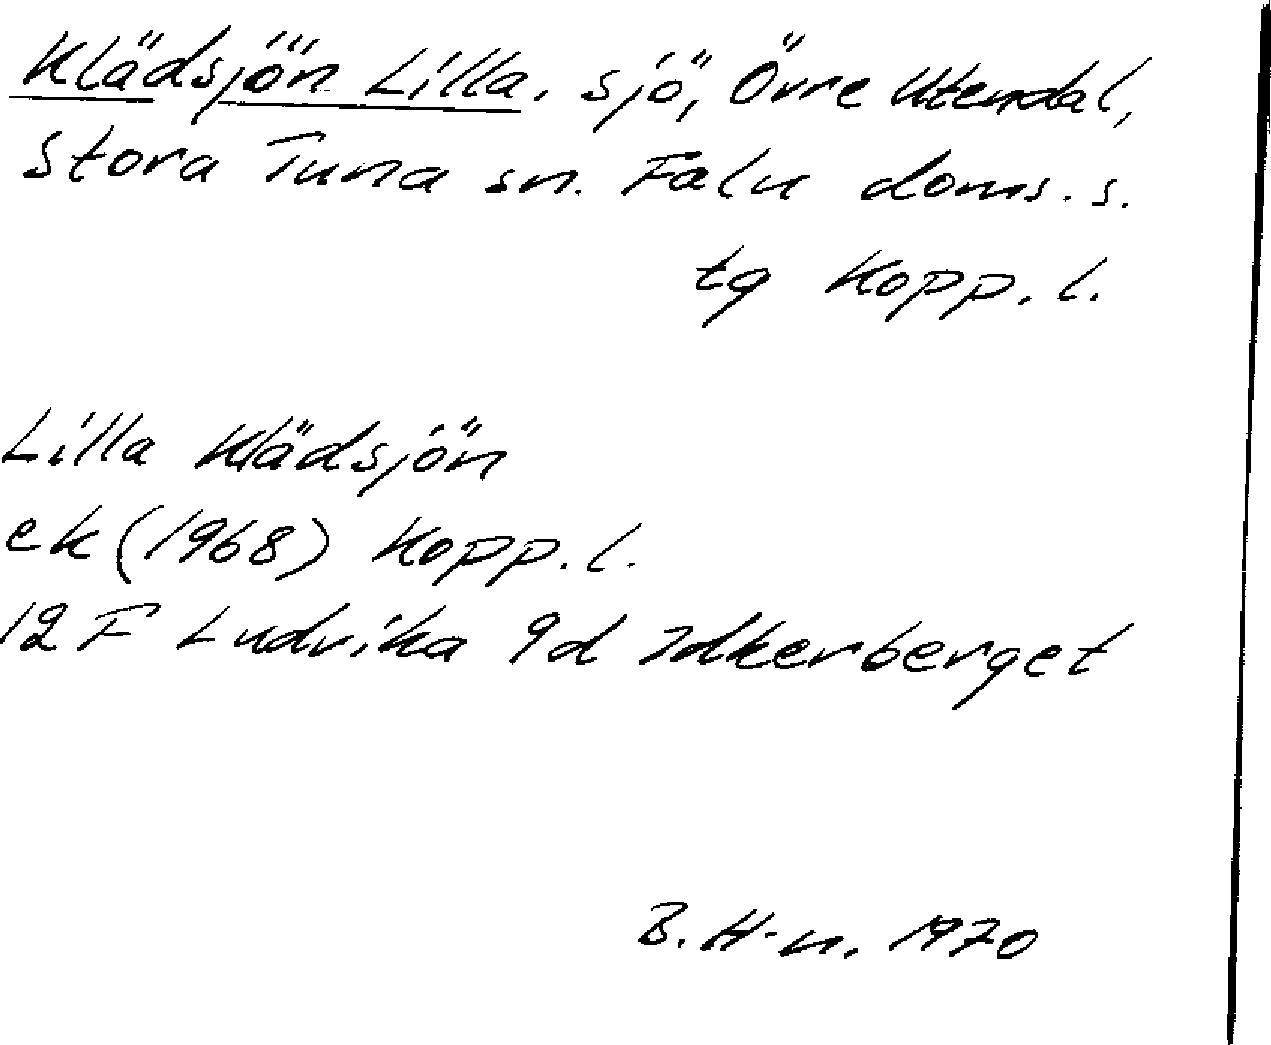 Klädsjön Lilla, sjö, Övre Utendal,
Stora Tuna sn. Falu doms. s.
tg Kopp. l.
Lilla Klädsjön
ek (1968) Kopp. l.
12 F Ludvika 9d Idkerberget
B. H-n. 1970